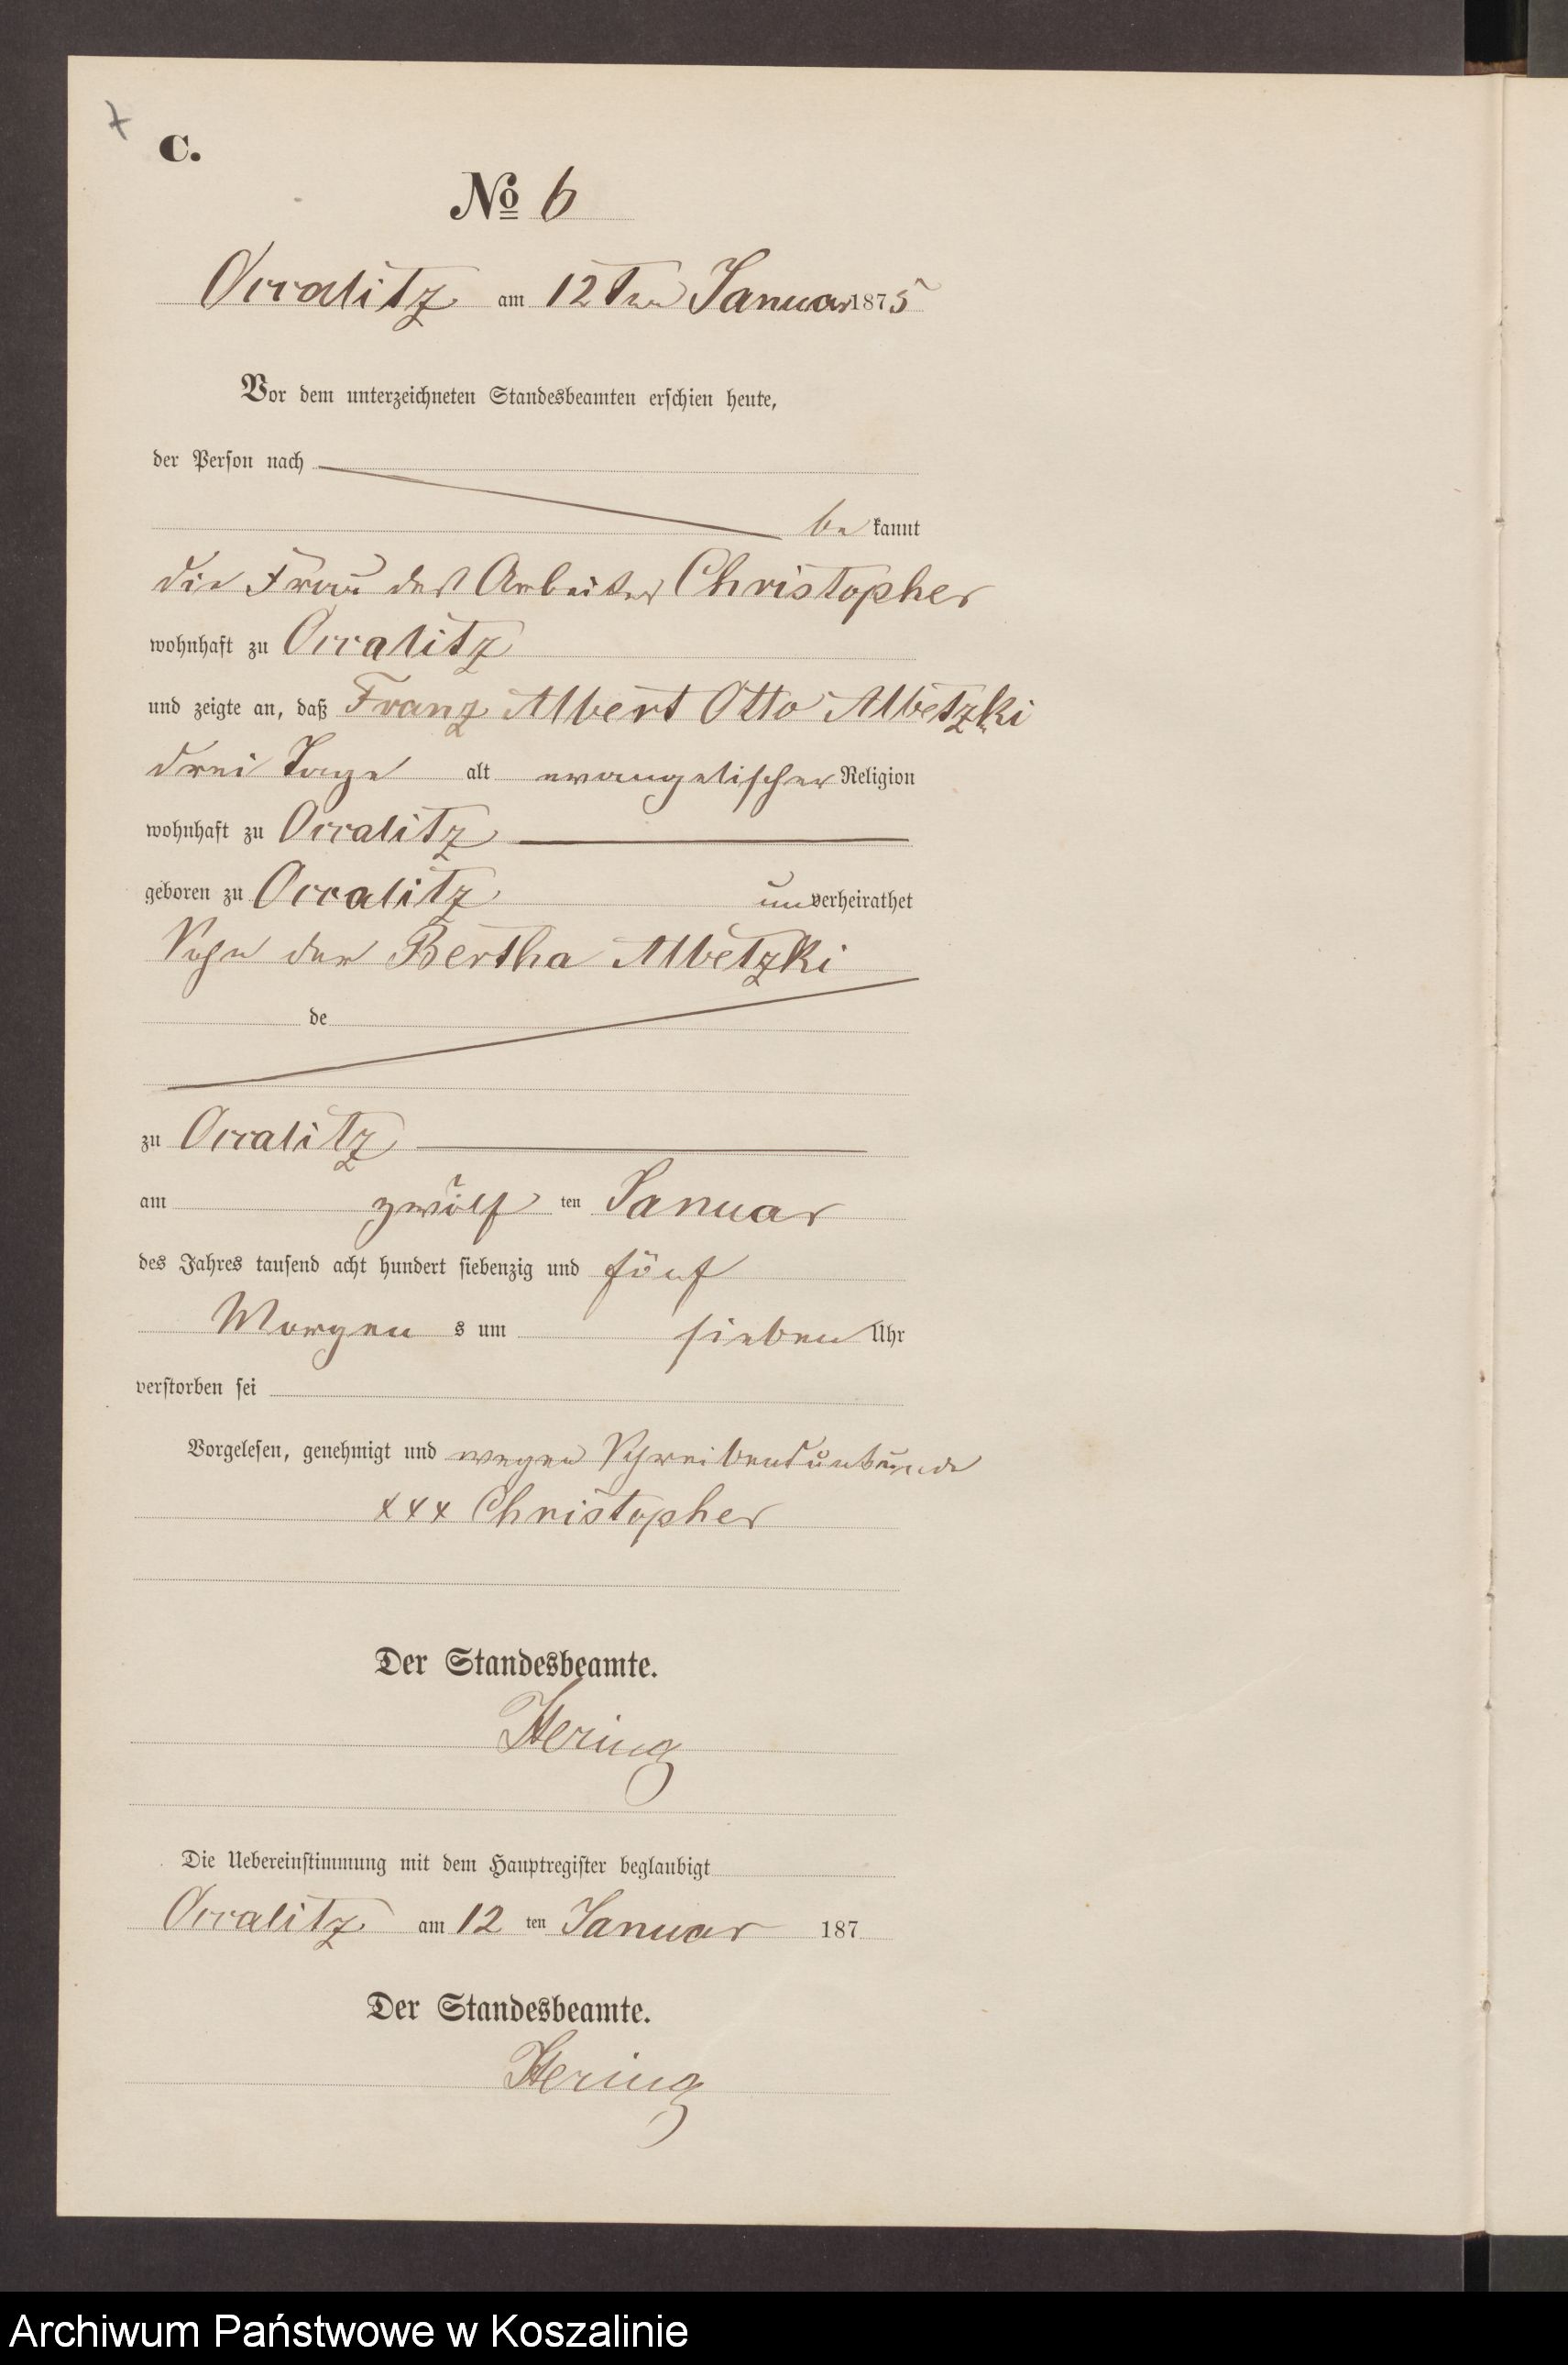 7
C.
No 6
Occalitz am 12ten Januar 1875
Vor dem unterzeichneten Standesbeamten erschien heute,
der Person nach
be kannt
die Frau des Arbeiter Christopher
wohnhaft zu Occalitz
und zeigte an, daß Franz Albert Otto Albetzki
drei Tage alt evangelischer Religion
wohnhaft zu Occalitz
geboren zu Occalitz unverheirathet
Sohn der Bertha Albetzki
de
zu Occalitz
am zwölf ten Januar
des Jahres tausend acht hundert siebenzig und fünf
Morgen s um sieben Uhr
verstorben sei
Vorgelesen, genehmigt und wegen Schreibensunkunde
xxx Christopher
Der Standesbeamte.
Hering
Die Uebereinstimmung mit dem Hauptregister beglaubigt
Occalitz am 12 ten Januar 187
Der Standesbeamte.
Hering
Archiwum Państwowe w Koszalinie